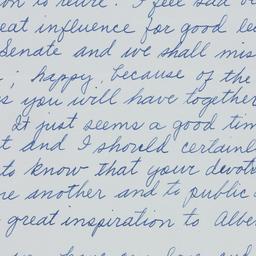 to retire. I feel sad
eat influence for good
Senate and we shall mis
; happy, because of the
s you will have together
It just seems a good tim
t and I should certainl
to know that your devot
ne another and to public
great inspiration to Albe